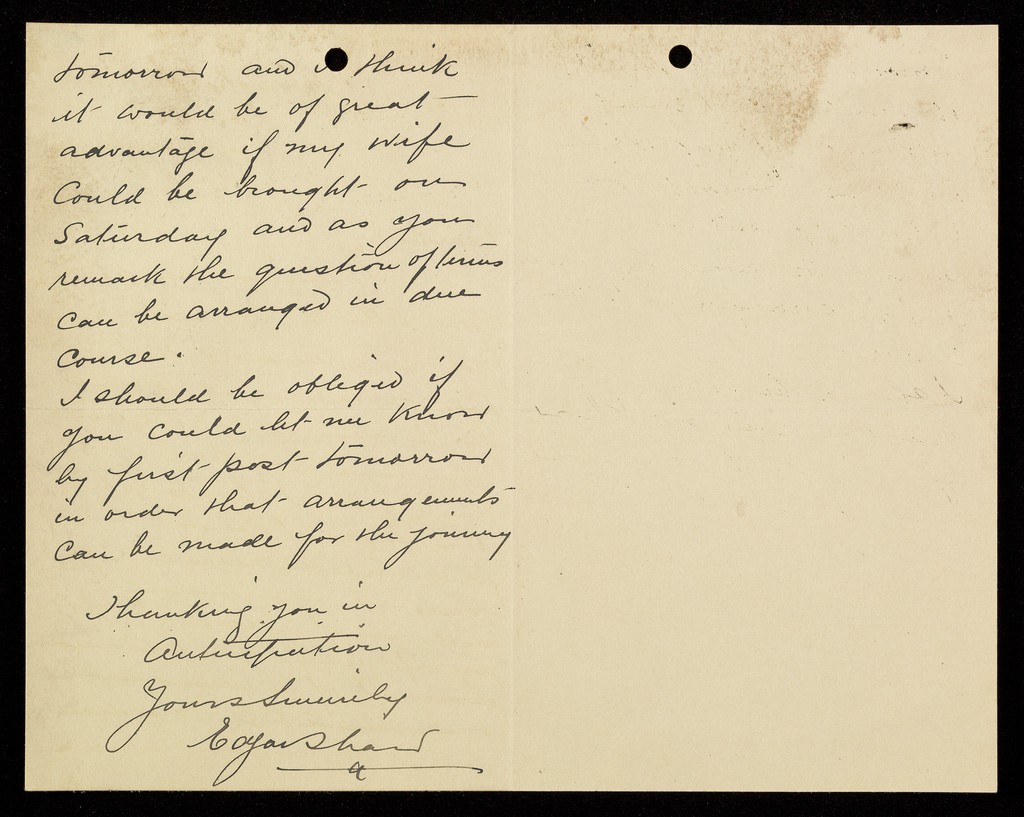 tomorrow and I think
it would be of great
advantage if my wife
Could be brought on
Saturday and as you
remark the question of terms
can be arranged in due
course.
I should be obliged if
you could let me know
by first post tomorrow
in order that arrangements
can be made for the journey
Thanking you in
Anticipation
Yours Sincerely
Edgar Shaw